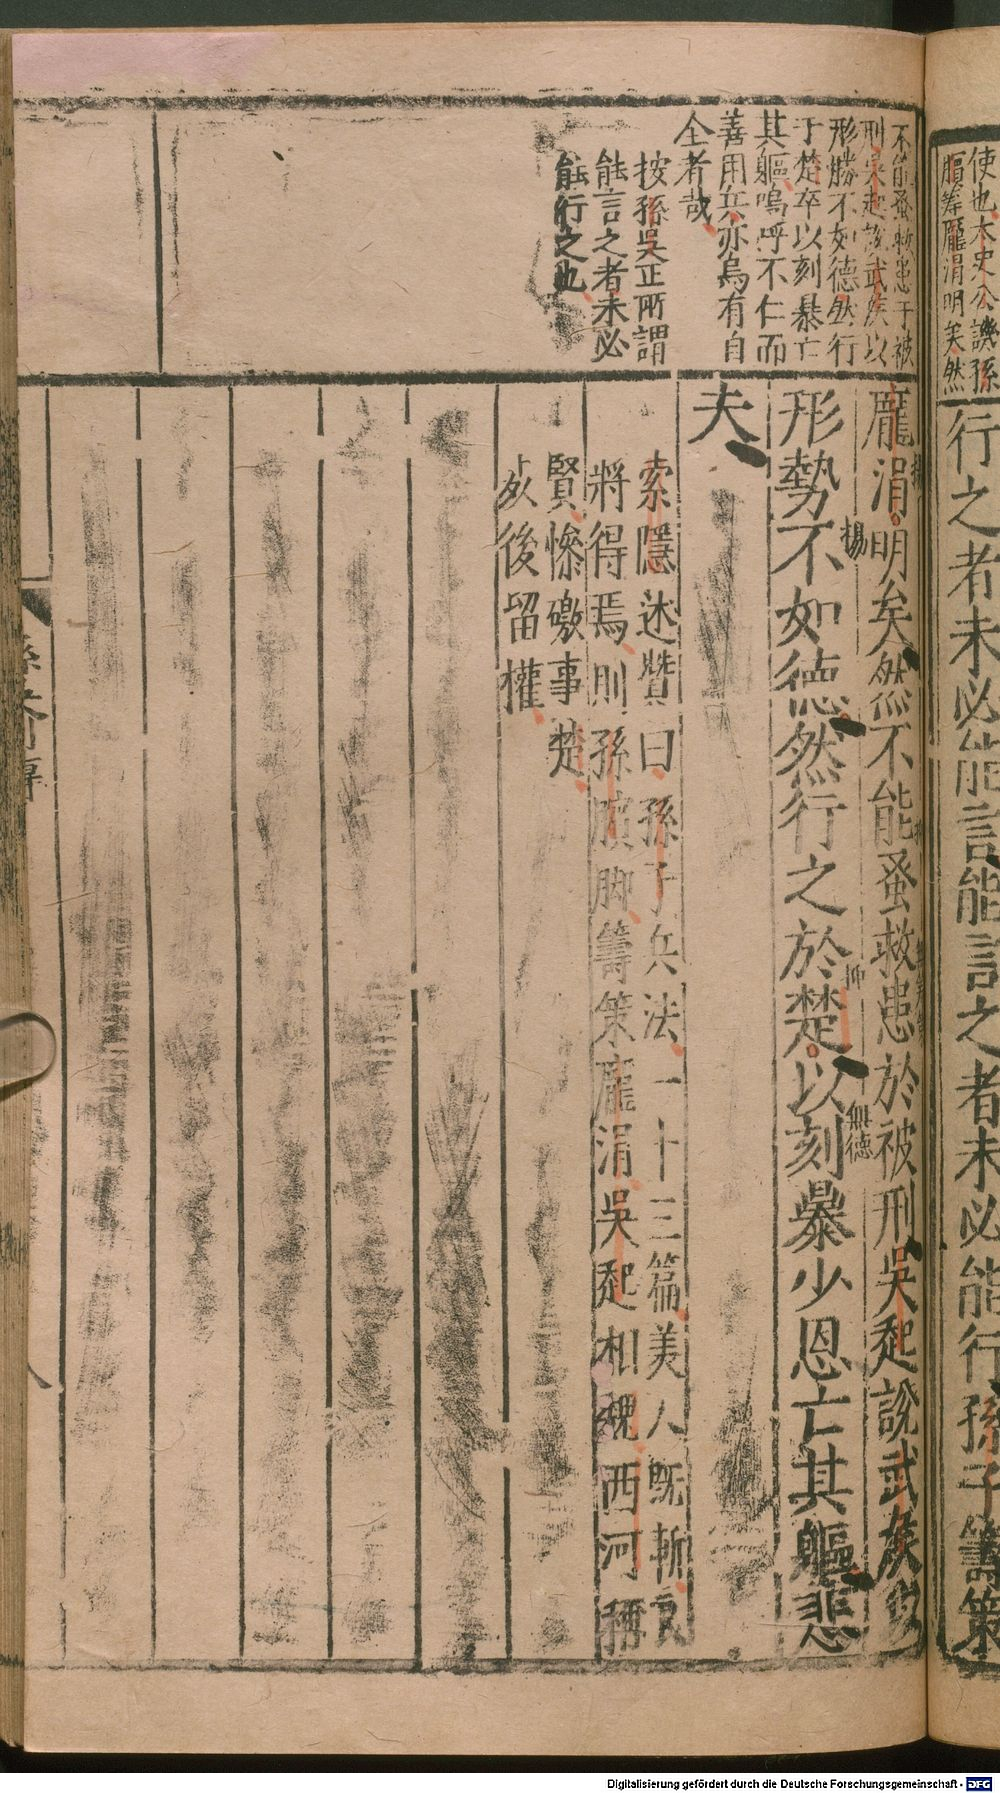 使也太史公譏孫
臏籌龐涓明矣然
行之者未必能言能言之者未必能行孫子籌策
不能蚤救患于被
刑吳起說武矦以
形勝不如德然行
于楚卒以刻暴亡
其軀嗚呼不仁而
善用兵亦烏有自
全者哉
按孫吳正所謂
能言之者未必
能行之也
龐涓明矣然不能蚤救患於被刑吳起說武矦以
揚
抑
無德
形勢不如德然行之於楚以刻暴少恩亡其軀悲
夫
索隱述贊曰孫子兵法一十三篇美人旣斬良
將得焉則孫臏脚籌策龐涓吳起相魏西河稱
賢慘礉事楚
死後留權
八
Digitalisierung gefördert durch die Deutsche Forschungsgemeinschaft - DFG